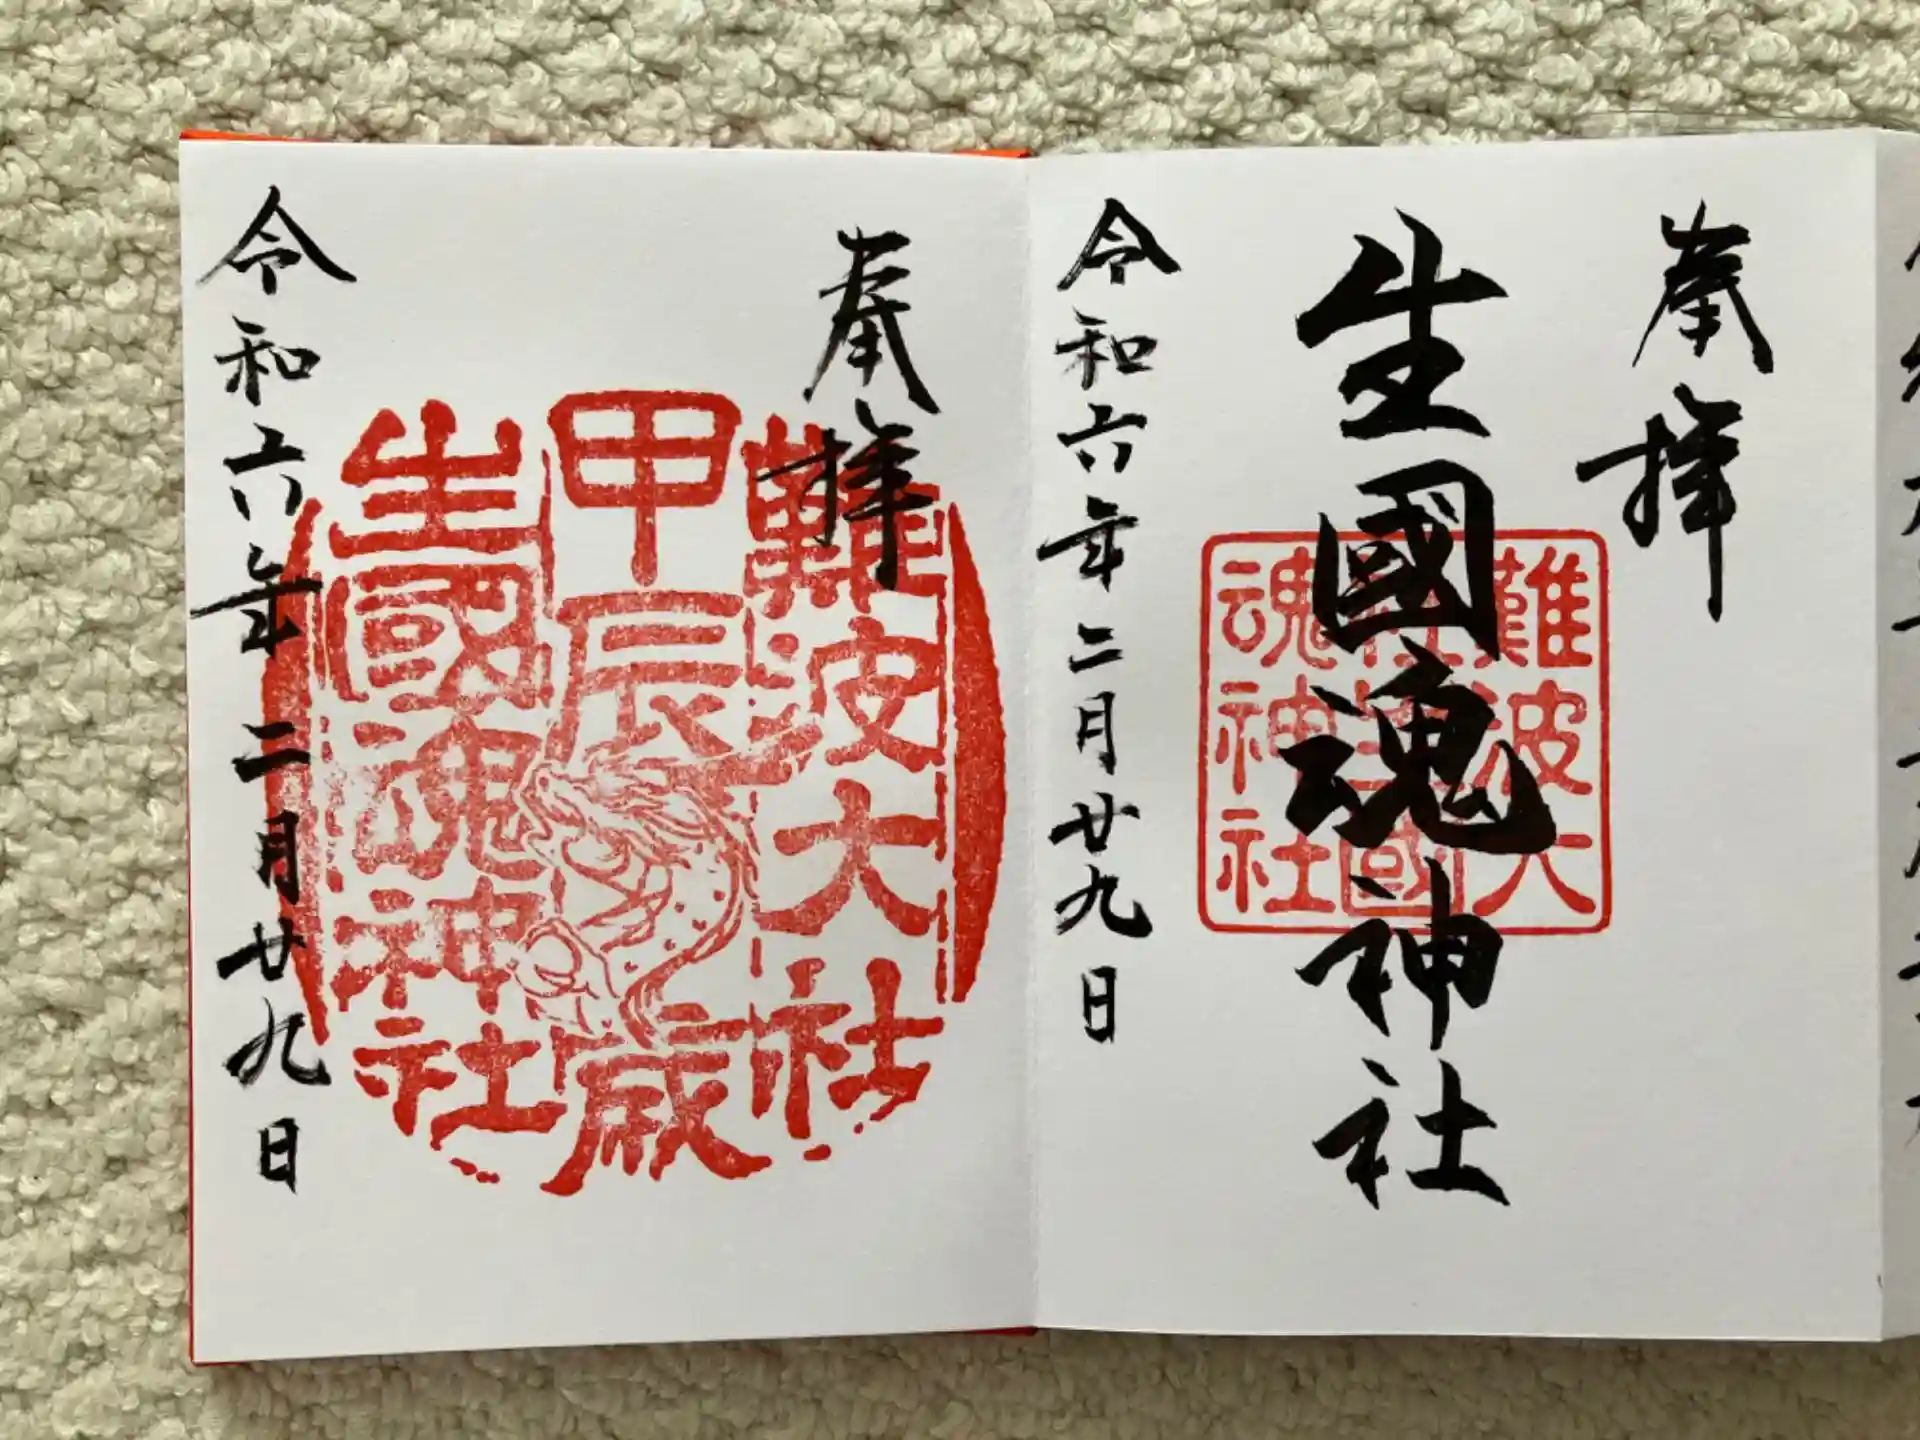 奉拜
生國魂神社
難波大
社生國
魂神社
令和六年二月廿九日
奉拜
難波大社
甲辰歳
生國魂神社
令和六年二月廿九日